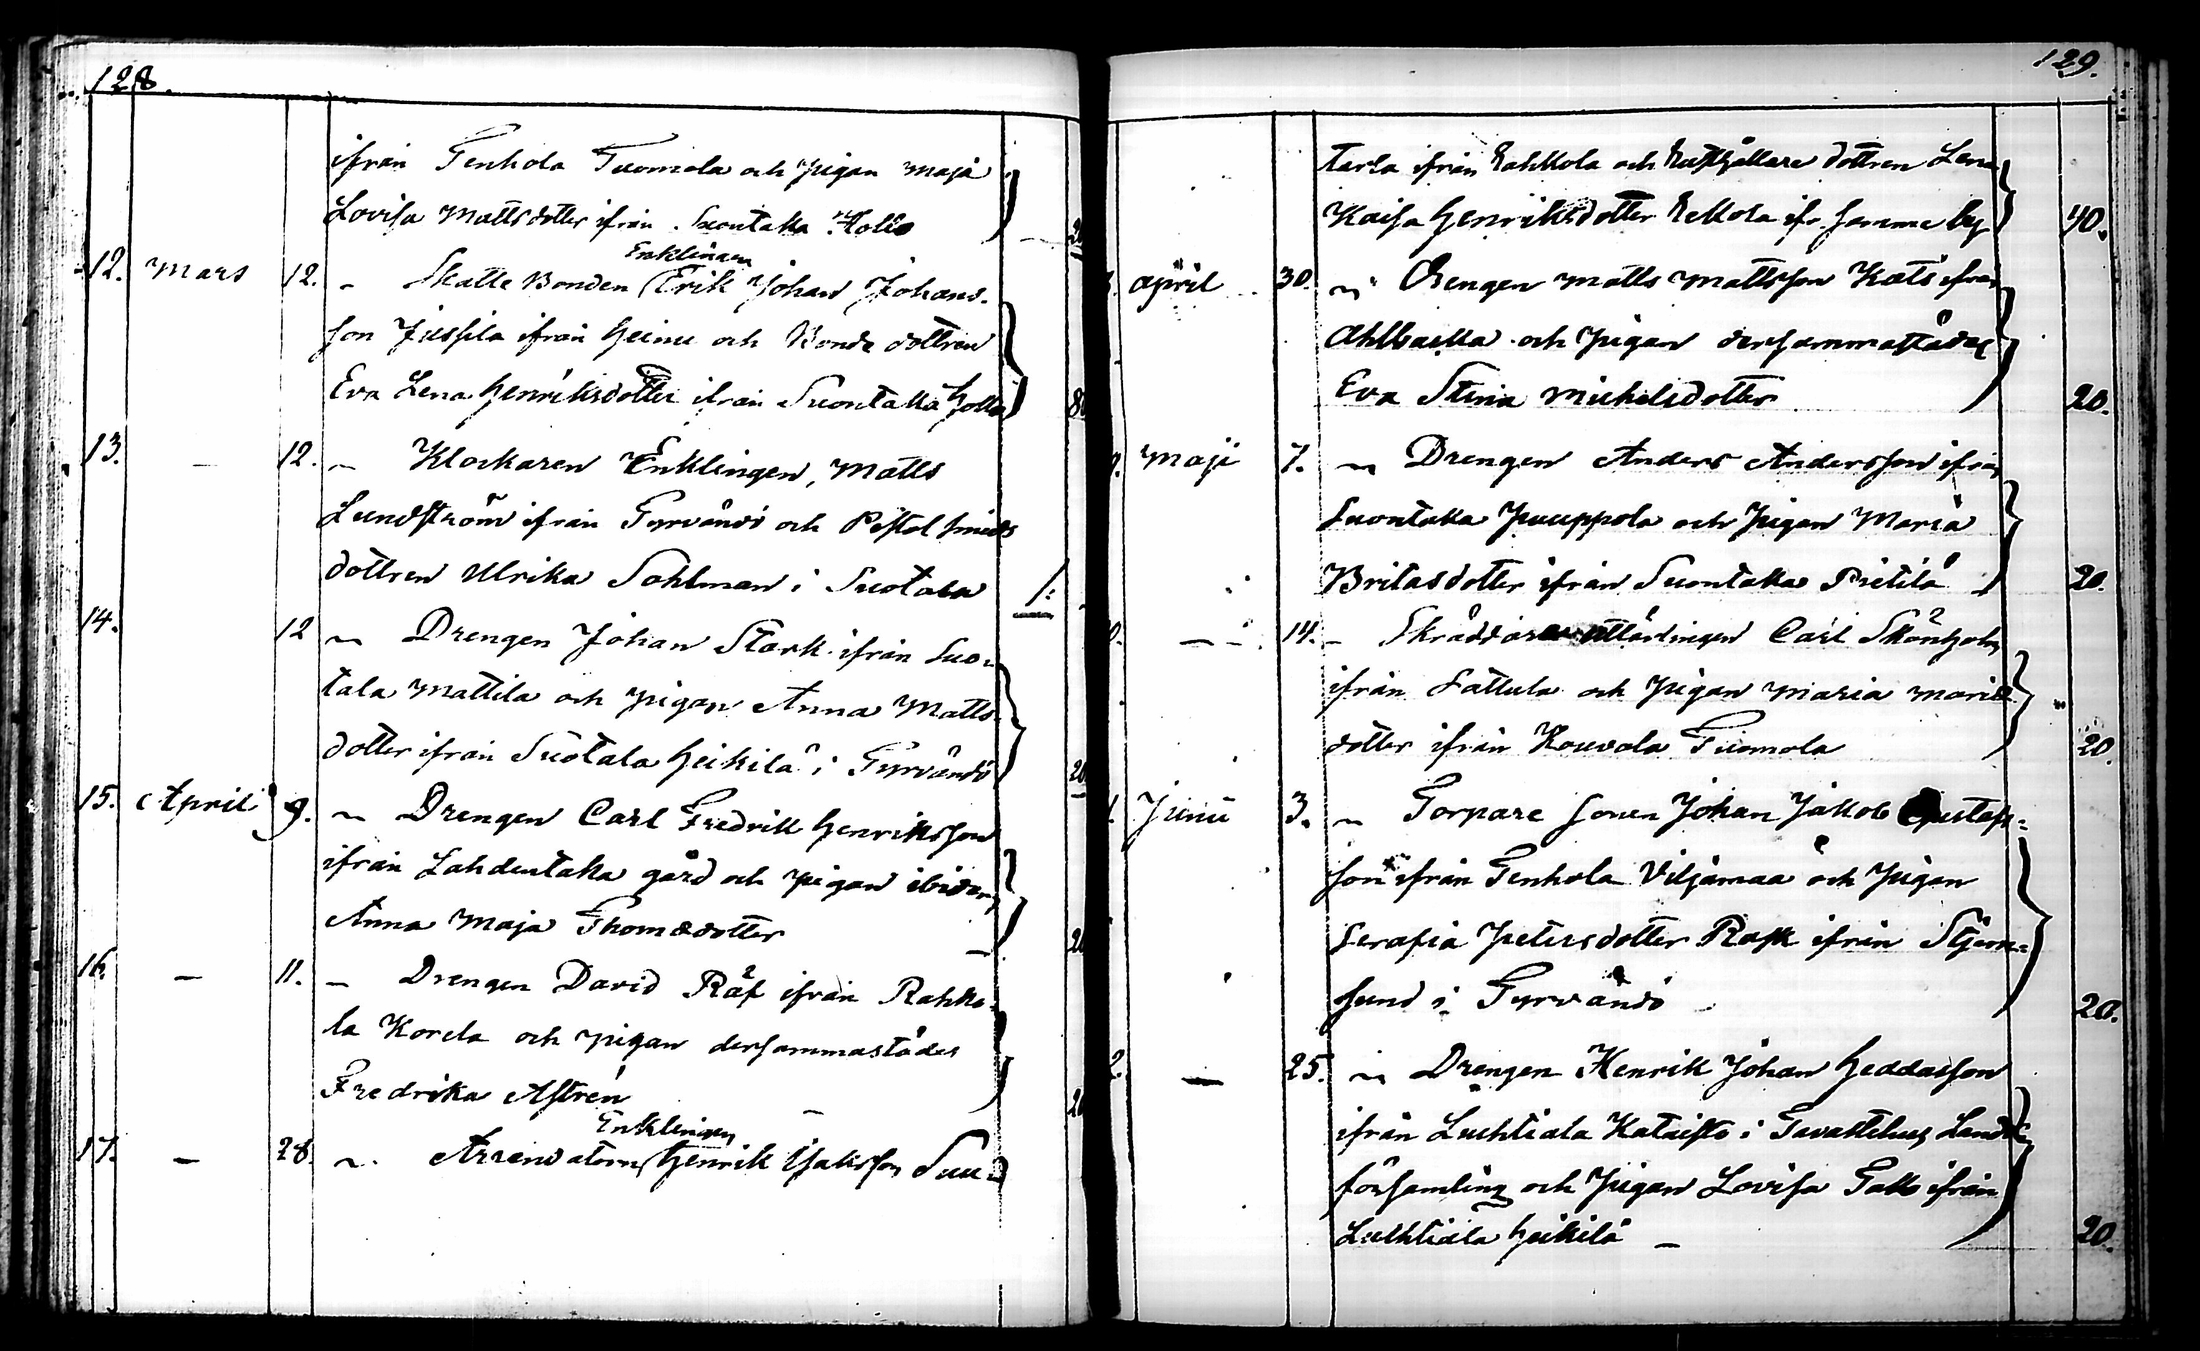 128.
ifrån Tenhola Tuomola och Pigan Maja
Lovisa Mattsdotter ifrån Suontaka Holla
Enklingen
12. Mars 12. „ Skatte Bonden (Erik Johan Johans-
son Jussila ifrån Heinu och Bonde dottren
Eva Lena Henriksdotter ifrån Suontaka Holla
13. — 12. „ Klockaren Enklingen, Matts
Lundström ifrån Tyrvändö och Pistolsmeds
dottren Ulrika Sohlman i Suotala 1:
14. 12 „ Drengen Johan Stark ifrån Suo-
tala Mattila och Pigan Anna Matts-
dotter ifrån Suotala Heikilä i Tyrvändö 20
15. April 9. „ Drengen Carl Fredrik Henriksson
ifrån Lahdentaka gård och Pigan ibidem
Anna Maja Thomasdotter — 20
16. — 11. „ Drengen David Räf ifrån Rahko-
la Korela och Pigan dersammastädes
Fredrika Astrén — 20
Enklingen
17. — 28. „ Arrendatorn (Henrik Isaksson Suu-
129.
tarla ifrån Rahkola och dottren Lena
Kaisa Henriksdotter Eskola ifr. samma by 40.
April 30. „ Drengen Matts Mattsson Kats ifrån
Ahlbacka och Pigan dersammastädes
Eva Stina Michelsdotter 20.
Maji 7. „ Drengen Anders Andersson ifrån
Suontaka Puuppola och Pigan Maria
Britasdotter ifrån Suontaka Prittilä 20.
— 14. „ Skräddare Carl Skönholm
ifrån Lattula och Pigan Maria Maria
dotter ifrån Kouvola Tuomola 20.
Junii 3. „ Torpare sonen Johan Jakob Gustafs-
son ifrån Tenhola Viljamaa och Pigan
Serafia Petersdotter Rask ifrån Stjern-
sund i Tyrvändö 20.
2. — 25. „ Drengen Henrik Johan Heddasson
ifrån Luhtiala Kataisto i Tavastehus Lands
församling och Pigan Lovisa ifrån
Luhtiala Heikilä — 20.